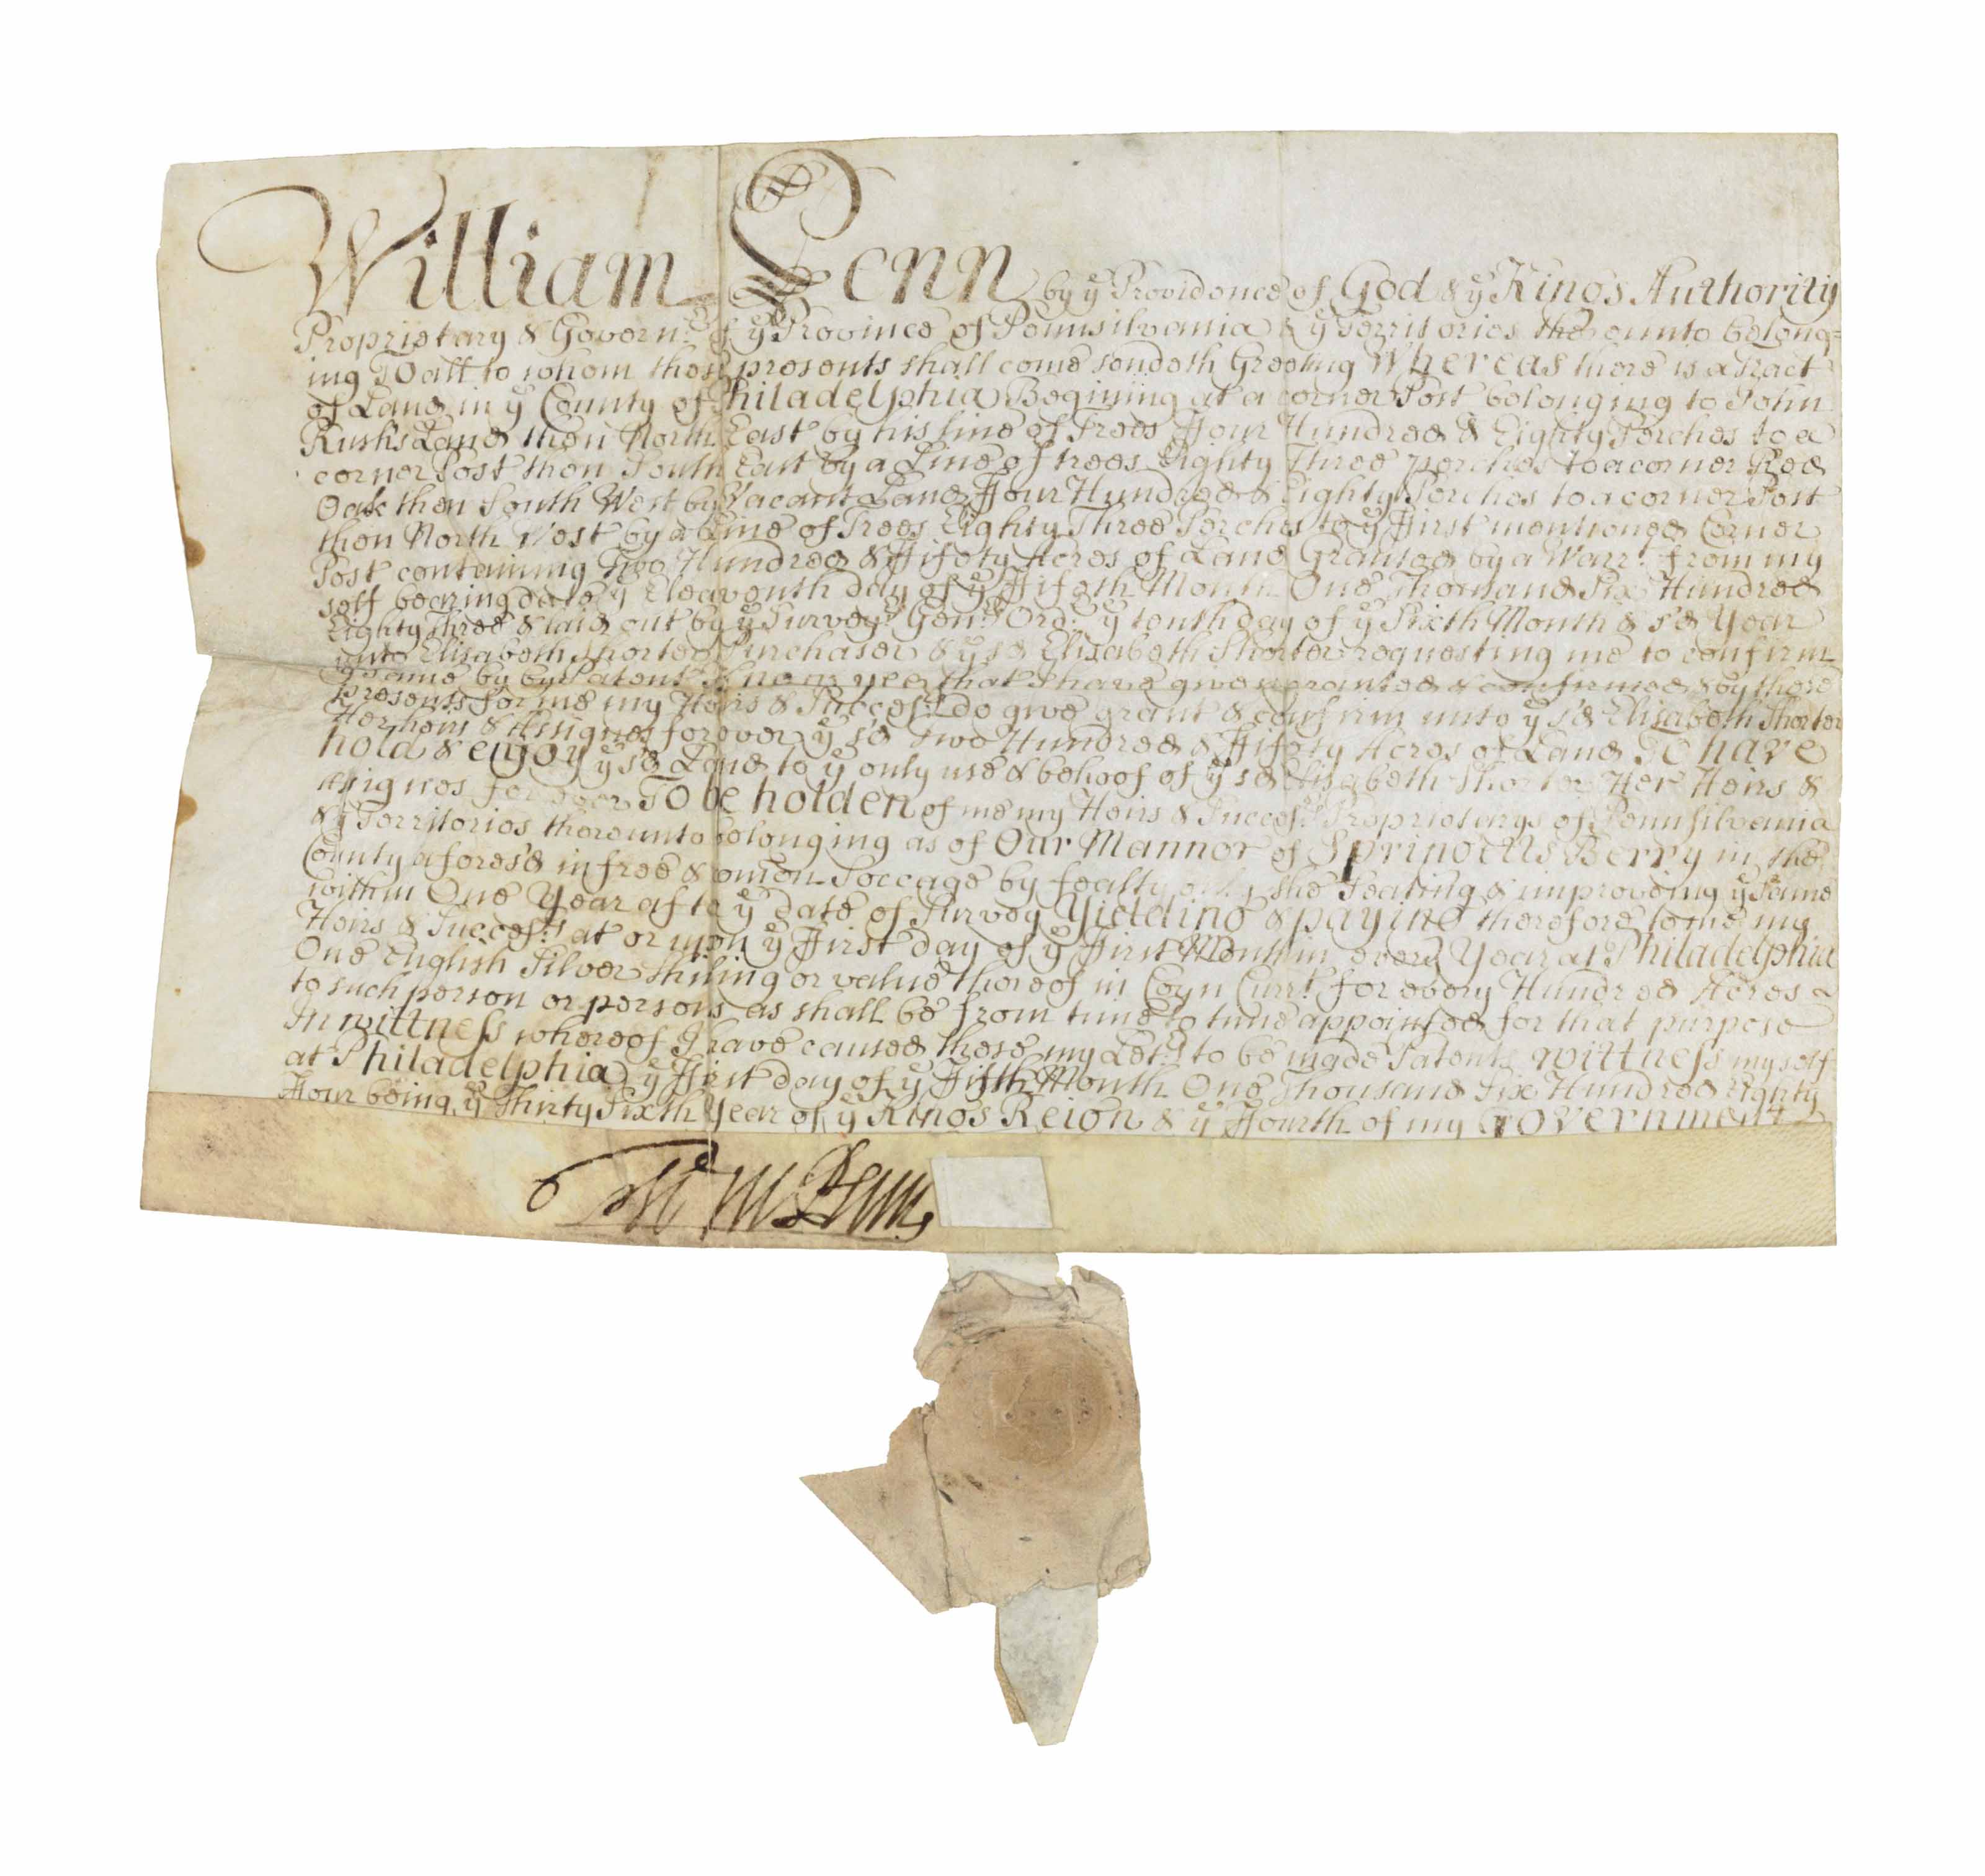 William Penn by yͤ Providence of God & yͤ Kings Authority
Proprietary & Governͬ of yͤ Province of Pennsilvania & yͤ Territories thereunto belong=
ing TO all to whom these presents shall come sendeth Greeting Whereas there is a Tract
of Land in yͤ County of Philadelphia Begining at a corner Post belonging to John
Rush's Land then North East by his line of Trees Four Hundred & Eighty Perches to a
corner Post then South East by a Line of trees Eighty Three perches to a corner Red
Oak then South West by Vacant Land Four Hundred & Eighty Perches to a corner Post
then North West by a Line of Trees Eighty Three Perches to yͤ First mentioned Corner
Post containing Two Hundred & Fifety Acres of Land Granted by a Warrͭ from my
self bearing date yͤ Eleaventh day of yͤ Fifeth Month One Thousand Six Hundred
Eighty Three & laid out by yͤ Surveyͬ Genˡˢ Ordͬ yͤ tenth day of yͤ Sixth Month & s'd Year
unto Elisabeth Shorter Purchaser & yͤ s'd Elisabeth Shorter requesting me to confirm
yͤ same by by Patent Know yee that I have given granted & confirmed & by these
Presents for me my Heirs & Succesʳˢ do give grant & confirm unto yͤ s'd Elisabeth Shorter
Her heirs & Assignes forever yͤ s'd Two Hundred & Fifety Acres of Land To have
hold & enjoy yͤ s'd Land to yͤ only use & behoof of yͤ s'd Elisabeth Shorter Her Heirs &
Assignes for ever To be holden of me my Heirs & Succesʳˢ Proprietarys of Pennsilvania
& yͤ Territories thereunto belonging as of Our Mannor of Springetts Berry in the
County afores'd in free & comon Soccage by fealty only she Seating & improveing yͤ Same
within One Year after yͤ Date of Survey Yielding & paying therefore to me my
Heirs & Succesʳˢ at or upon yͤ First day of yͤ First Month in every Year at Philadelphia
One English Silver Shiling or value thereof in Coyn Currͭ for every Hundred Acres
to such person or persons as shall be from time to time appointed for that purpose
In wittness whereof I have caused these my Letʳˢ to be made Patents wittness myself
at Philadelphia yͤ First day of yͤ Fifth Month One Thousand Six Hundred Eighty
Four being yͤ Thirty Sixth Year of yͤ Kings Reign & yͤ Fourth of my Government
Wm Penn